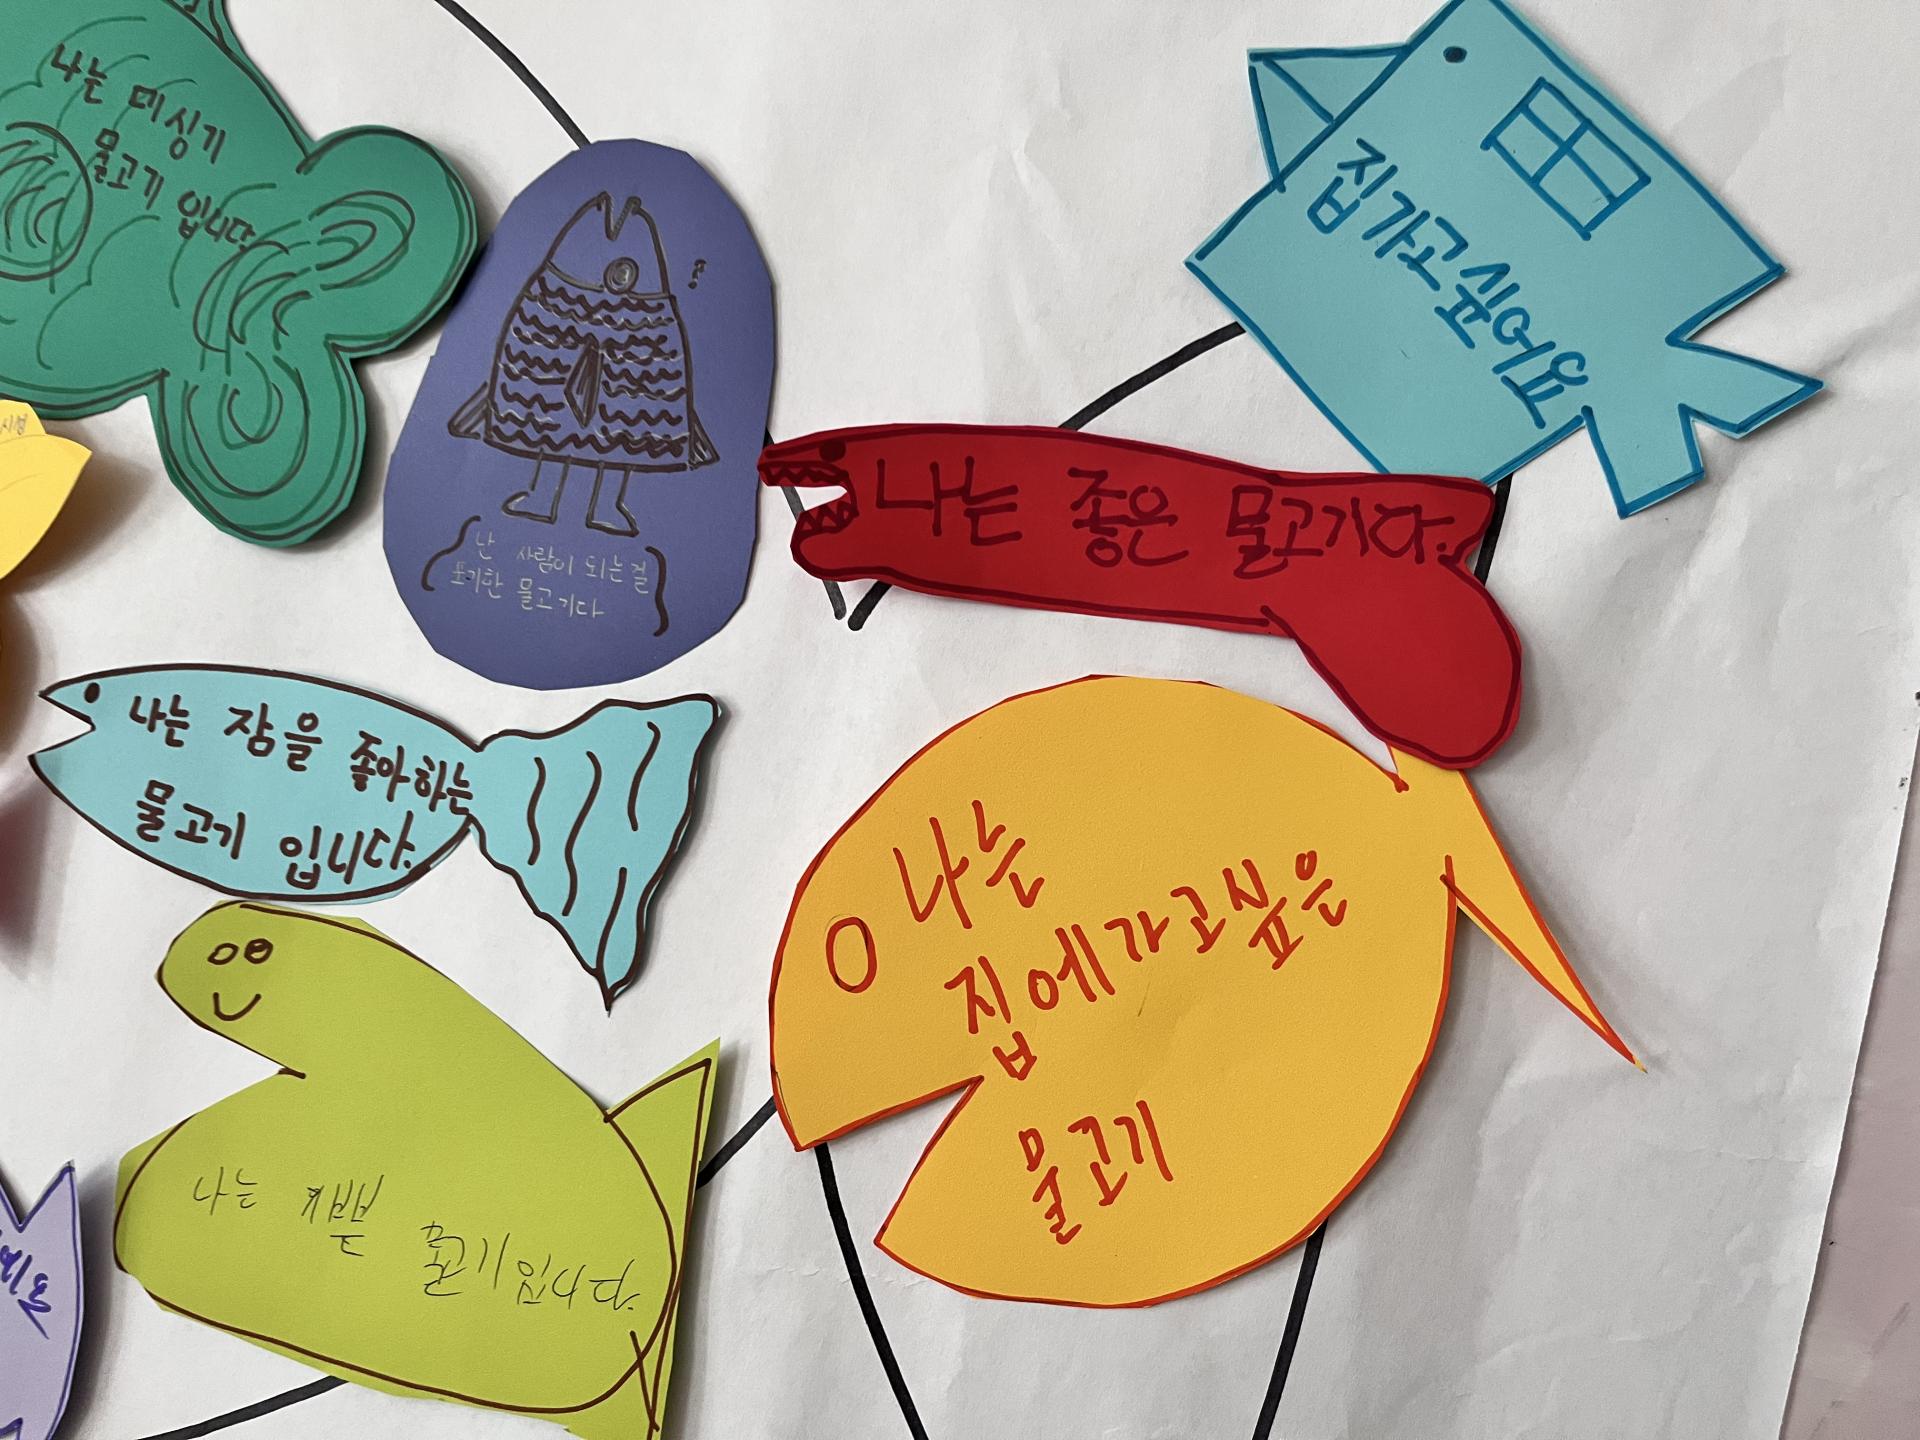 나는 메싱기
물고기 입니다
난 사람이 되는걸
포기한 물고기다
집가고싶어요
나는 좋은 물고기다.
나는 잠을 좋아하는
물고기 입니다.
나는
집에가고싶은
물고기
나는 기쁜 물고기입니다.